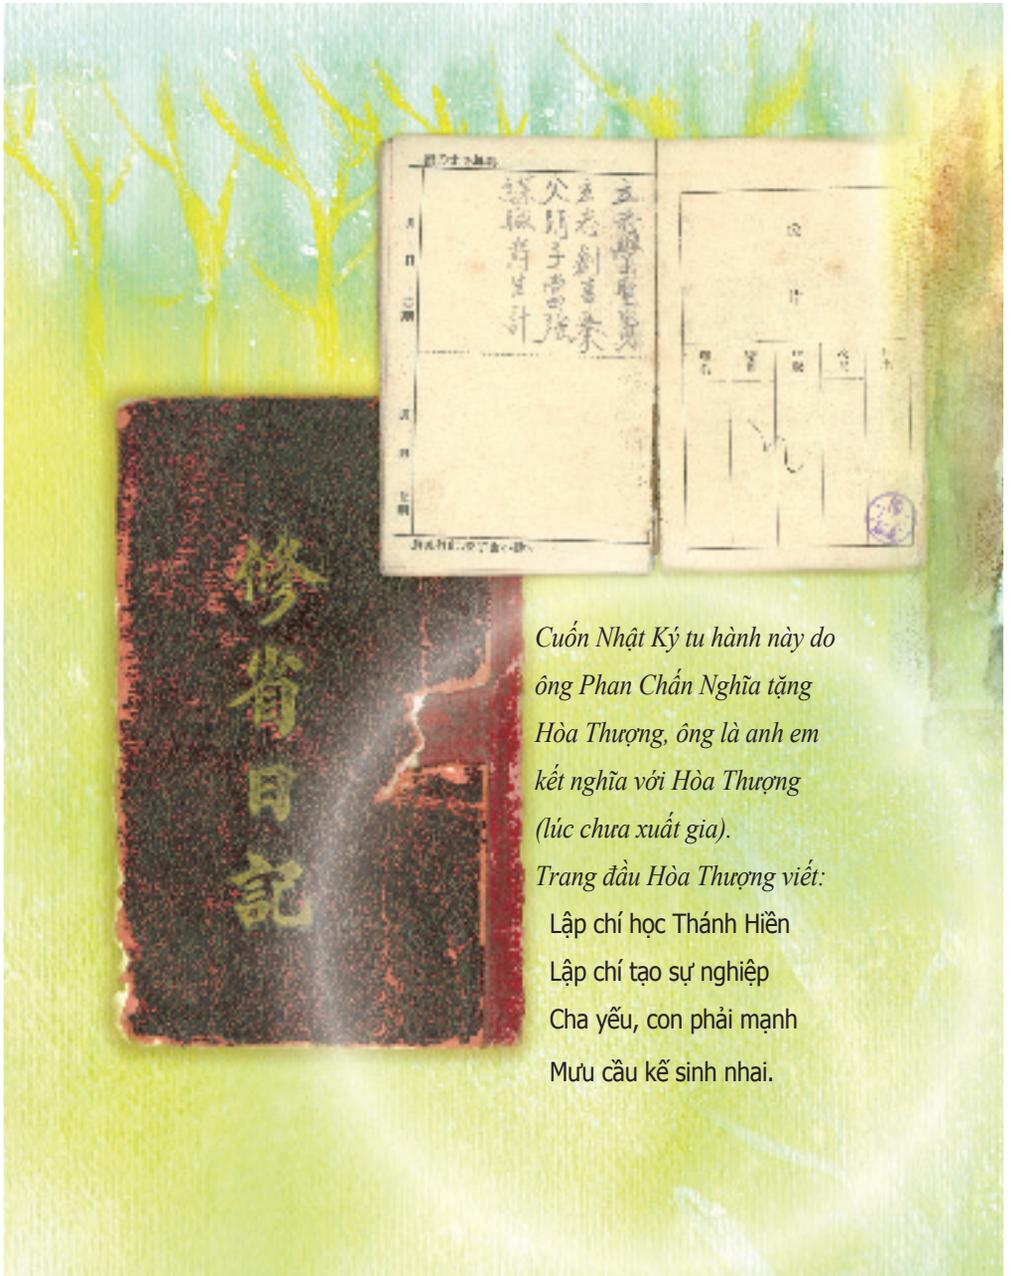 立志學聖賢
立志創事業
父弱子當強
謀職齊生計
修省日記
Cuốn Nhật Ký tu hành này do
ông Phan Chấn Nghĩa tặng
Hòa Thượng, ông là anh em
kết nghĩa với Hòa Thượng
(lúc chưa xuất gia).
Trang đầu Hòa Thượng viết:
Lập chí học Thánh Hiền
Lập chí tạo sự nghiệp
Cha yếu, con phải mạnh
Mưu cầu kế sinh nhai.